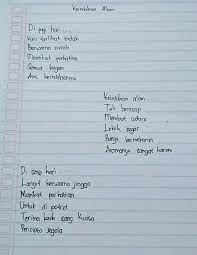 Keindahan Alam
Di pagi hari...
Kau terlihat indah
Berwarna cerah
Memikat perhatian
Semua kagum
Atas keindahanmu
Keindahan alam...
Tak berasap
Membuat udara
Lebih segar
Bunga bermekaran
Aromanya sangat harum
Di sore hari...
Langit berwarna jingga
Memikat perhatian
Untuk di potret
Terima kasih yang kuasa
Pencipta segala